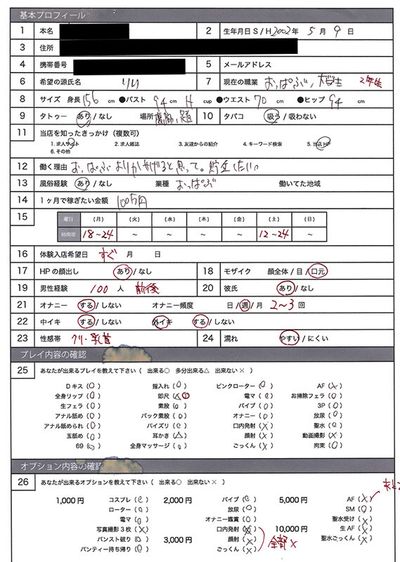 基本プロフィール
1 本名 2 生年月日 S / H 2002年 5月 9日
3 住所
4 携帯番号 5 メールアドレス
6 希望の源氏名 りり 7 現在の職業 おっぱぶ、大学生 2年後
8 サイズ 身長 156 cm ●バスト 94 cm H cup ●ウエスト 70 cm ●ヒップ 94 cm
9 タトゥー あり / なし 場所 10 タバコ 吸う / 吸わない
11 当店を知ったきっかけ (複数可)
1.求人サイト 2.求人雑誌 3.友達からの紹介 4.キーワード検索 5.当店HP
6.その他
12 働く理由 おっぱぶよりかせげると思って。貯金したい
13 風俗経験 あり / なし 業種 おっぱぶ 働いてた地域
14 1ヶ月で稼ぎたい金額 100万円
15 曜日 (月) (火) (水) (木) (金) (土) (日)
時間帯 18-24 ~ ~ ~ ~ 12-24 ~
16 体験入店希望日 すぐ 月 日
17 HPの顔出し あり / なし 18 モザイク 顔全体 / 目 / 口元
19 男性経験 100 人 前後 20 彼氏 あり / なし
21 オナニー する / しない オナニー頻度 日 / 週 / 月 2~3 回
22 中イキ する / しない 外イキ する / しない
23 性感帯 クリ・乳首 24 濡れ やすい / にくい
プレイ内容の確認
25 あなたが出来るプレイを教えて下さい ( 出来る○ 多分出来る△ 出来ない× )
Dキス (○) 指入れ (○) ピンクローター (○) AF (×)
全身リップ (○) 即尺 (△) 電マ (○) お掃除フェラ (○)
生フェラ (○) 素股 (○) バイブ (○) 3P (○)
アナル舐め (○) バック素股 (○) オナニー (○) 放尿 (○)
アナル舐められ (○) パイズリ (○) 口内発射 (×) 聖水 (○)
玉舐め (○) 耳かき (△) 顔射 (×) 動画撮影 (×)
69 (○) 全身マッサージ (○) ごっくん (×) 拘束 (○)
オプション内容の確認
26 あなたが出来るオプションを教えて下さい ( 出来る○ 出来ない× )
1,000円 コスプレ (○) 2,000円 バイブ (○) 5,000円 AF (×)
ローター (○) 放尿 (○) SM (○)
電マ (○) オナニー鑑賞 (○) 聖水受け (×)
写真撮影3枚 (×) 口内発射 (×) 10,000円 生AF (×)
パンスト破り (○) 3,000円 顔射 (×) 聖水ごっくん (×)
パンティー持ち帰り (○) ごっくん (×)